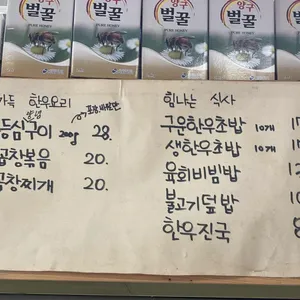 양구
벌꿀
PURE HONEY
벌꿀
PURE HONEY
양구
벌꿀
PURE HONEY
벌꿀
한우요리
등심구이 200g 28.
곱창볶음 20.
곱창찌개 20.
힘나는 식사
구운한우초밥 10개
생한우초밥 10개
육회비빔밥
불고기덮밥
한우진국